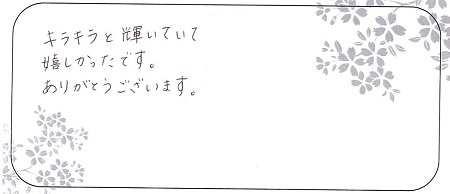 キラキラと輝いていて
嬉しかったです。
ありがとうございます。